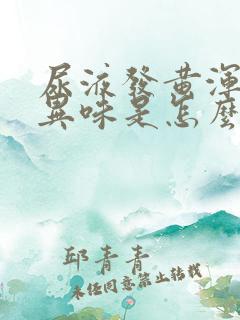 尿液發黃渾
異味是怎麼
邱青青
未經同意禁止轉載